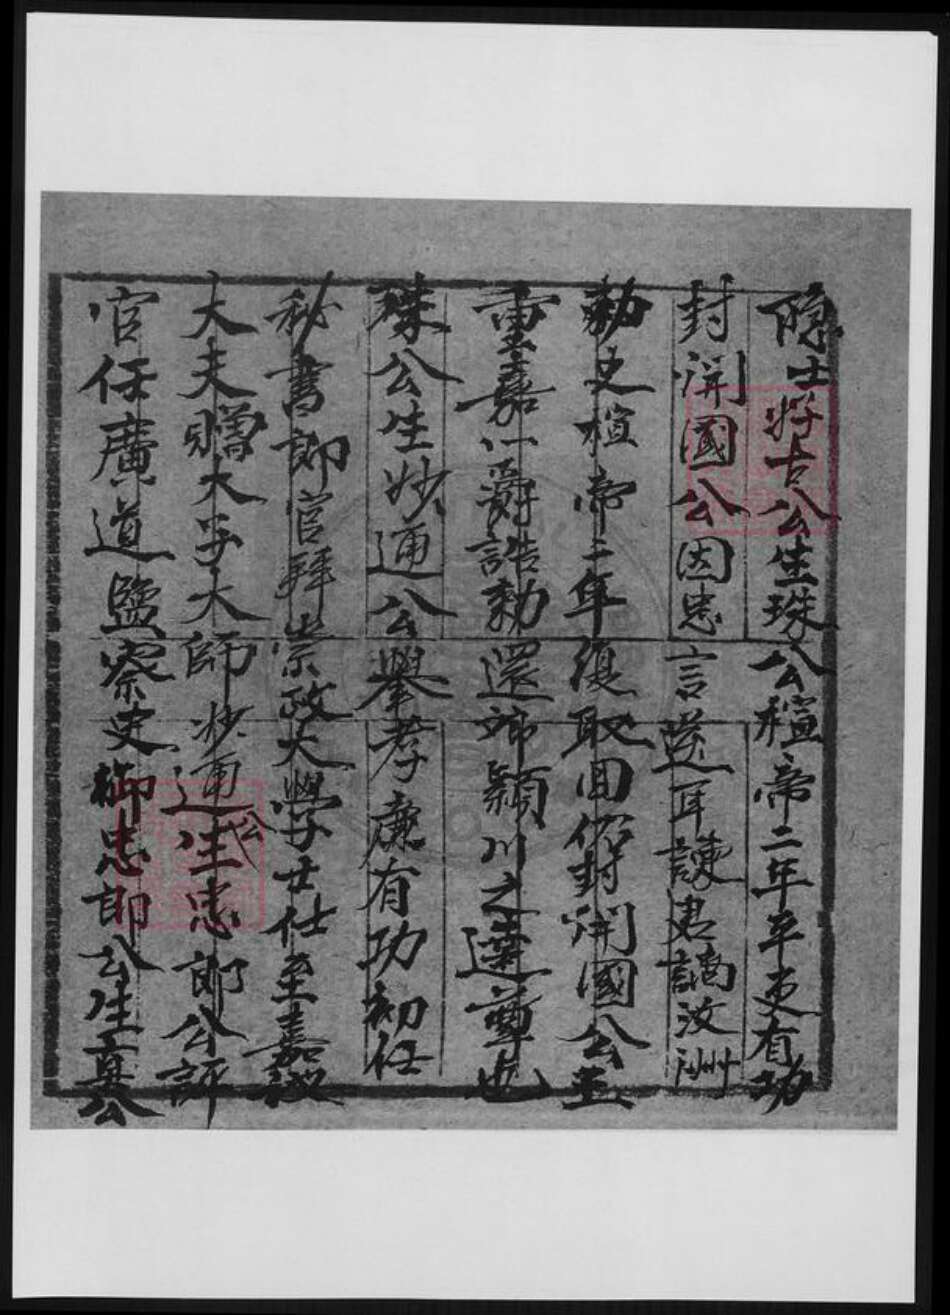 隱士好古公生珠公桓帝二年平吏有功
封開國公因忠言逆耳諫君謫汝洲
勅史桓帝二年復取回仍封開國公至
重嘉八爵誥勅還神潁川之達尊也
珠公生妙通公舉孝廉有功初任
秘書郎官拜崇政大學士仕至嘉議
大夫贈大子大師妙通公生忠郎公評
官任廣道監察史御忠郎公生真公